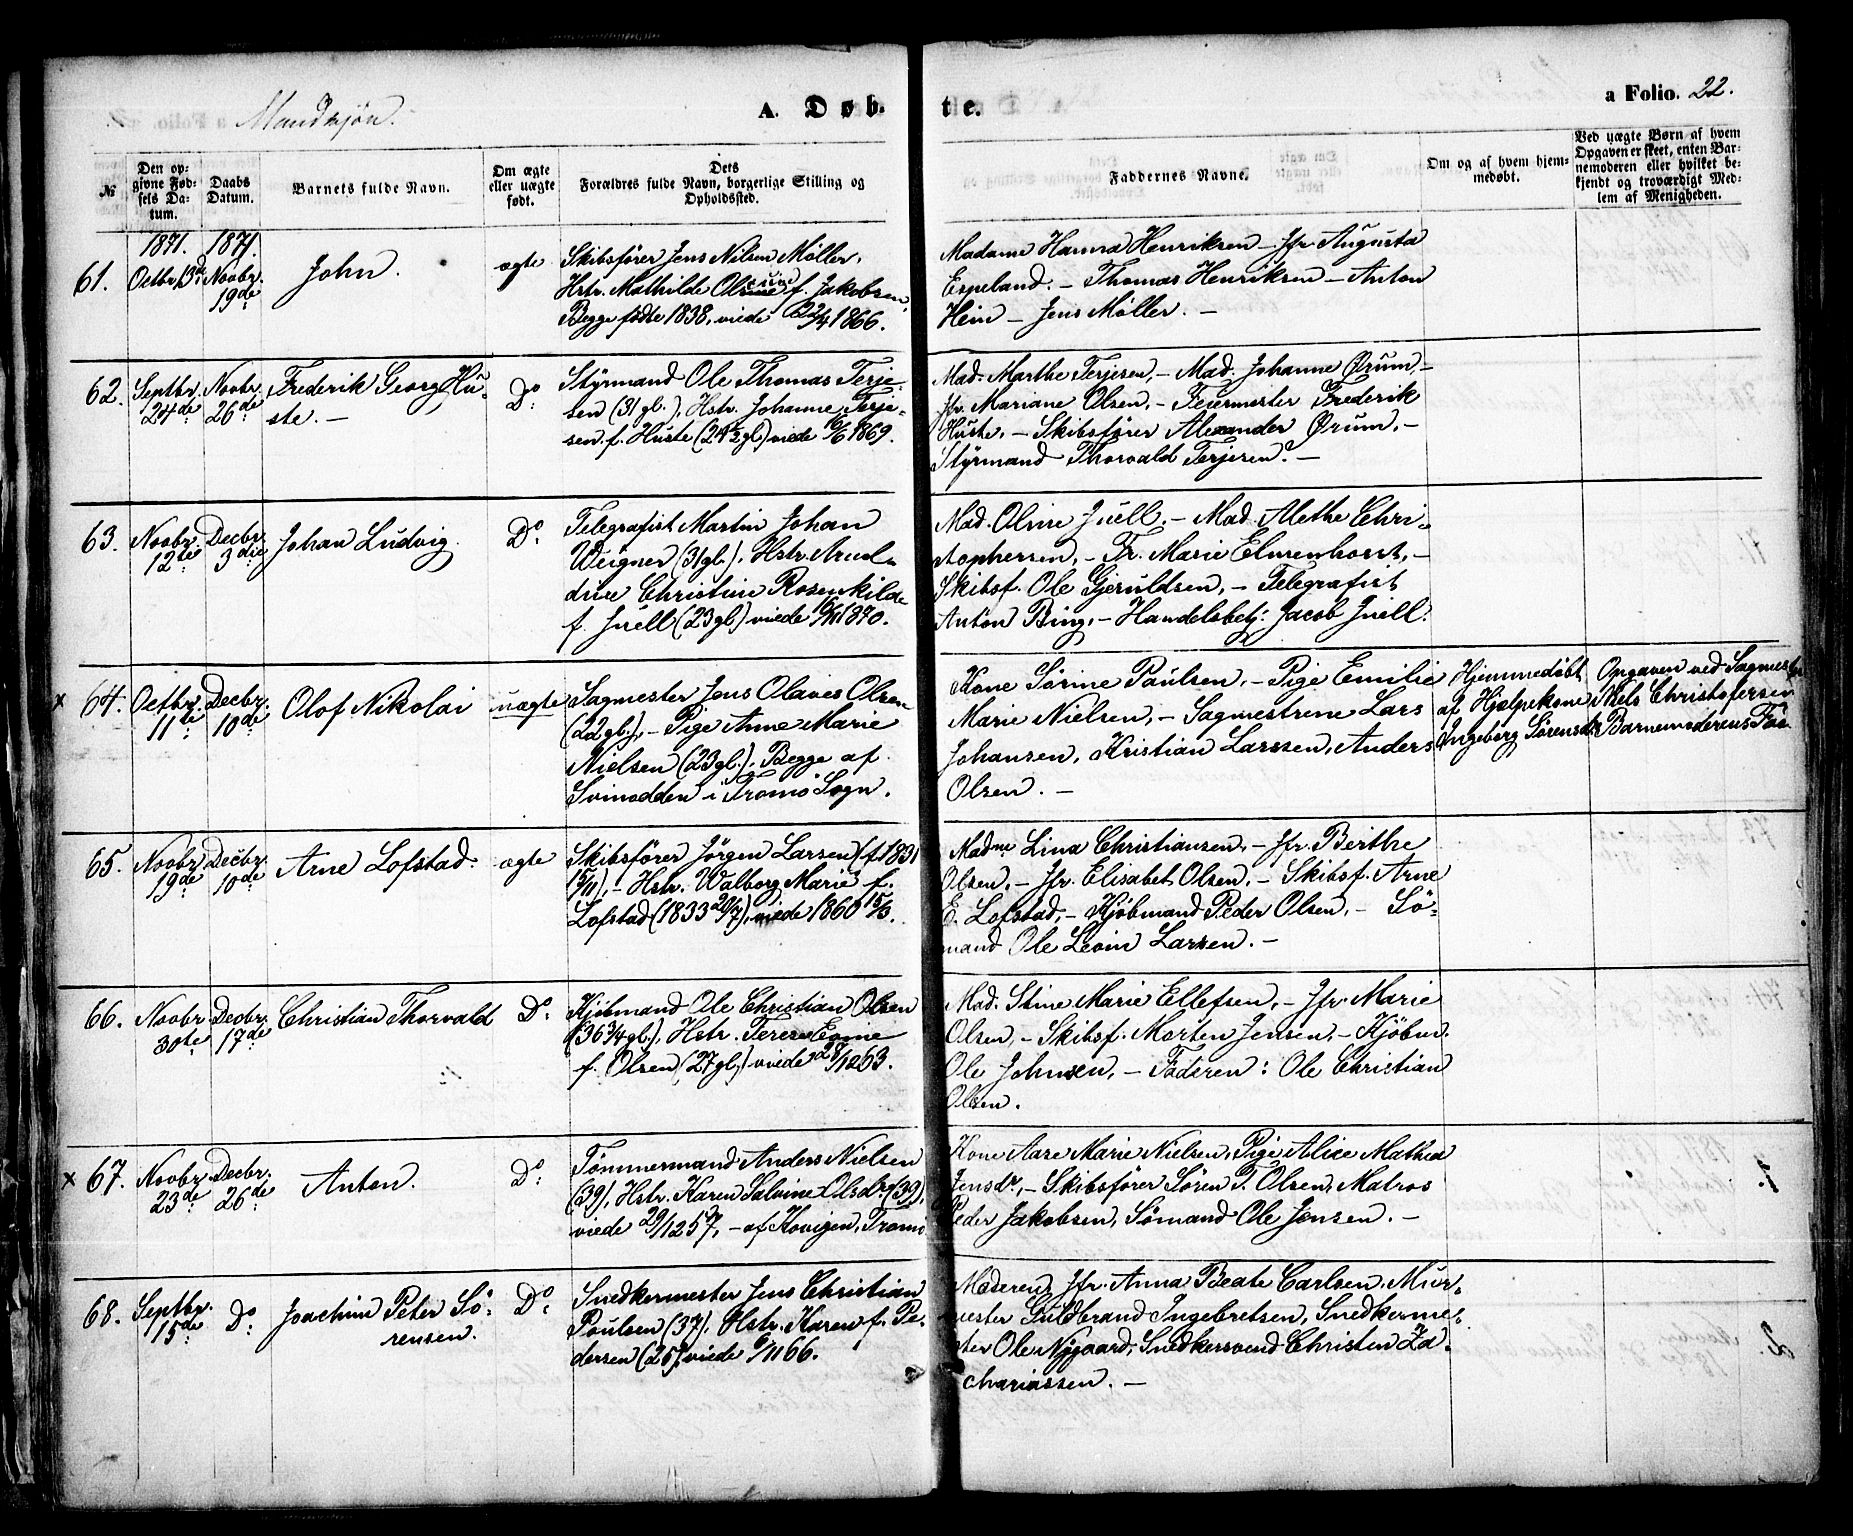 Mandkjøn.
A. Døb- te.
a Folio. 22.
№
Den opgivne Fødsels Datum.
Daabs Datum.
Barnets fulde Navn.
Om ægte eller uægte født.
Dets Forældres fulde Navn, borgerlige Stilling og Opholdssted.
Faddernes Navne.
Om og af hvem hjemmedøbt.
Ved uægte Børn af hvem Opgaven er skeet, enten Barnemoderen eller hvilket bekjendt og troværdigt Medlem af Menigheden.
1871. 1871.
61. Octbr. 13de Novbr. 19de
John.
ægte
Skibsfører Jens Nilsen Møller,
Hstr. Mathilde Olsine f. Jakobsen,
Begge fødte 1838, viede 22/4 1866.
Madame Hanna Henriksen – Jfr. Augusta
Espeland. – Thomas Henriksen – Anton
Hein – Jens Møller. –
62. Septbr. 24de Novbr. 26de
Frederik Georg Hu-
ste. –
Do
Styrmand Ole Thomas Terje-
sen (31 gl.), Hstr. Johanne Terje-
sen f. Huste (24½ gl.) viede 16/6 1869.
Mad. Marthe Terjesen, – Mad. Johanne Ørum, –
Jfr. Mariane Olsen, – Feiermester Frederik
Huste, – Skibsfører Alexander Ørum, –
Styrmand Thorvald Terjesen. –
63. Novbr. 12te Decbr. 3die
Johan Ludvig.
Do
Telegrafist Martin Johan
Weigner (31 gl.). Hstr.
Christine Rosenkilde
f. Juell (23 gl.) viede 16/11 1870.
Mad. Olsine Juell. – Mad. Alethe Chri-
stophersen, – Fr. Marie Elmenhorst, –
Skibsf. Ole Gjeruldsen, – Telegrafist
Anton Bing, – Handelsbetj: Jacob Juell.
× 64. Octbr. 11te Decbr. 10de
Olof Nikolai
uægte
Sagmester Jens Olaves Olsen
(22 gl.), – Pige Anne Marie
Nielsen (23 gl.), Begge af
Svinodden i Tromø Sogn.
Kone Sørine Paulsen, – Pige Emilie
Marie Nielsen, – Sagmestrene Lars
Johansen, Kristian Larssen, Anders
Olsen. –
Hjemmedøbt
af Hjælpekone
Ingeborg Sørensdr.
Opgaven ved Sagmester
Niels Christofersen
Barnemoderens Fa-
65. Novbr. 19de Decbr. 10de
Arne Lofstad.
ægte
Skibsfører Jørgen Larsen (f. 1831
15/11), – Hstr. Walborg Marie f.
Lofstad (1833 20/7), viede 1860 15/3.
Madme Lina Christiansen, – Jfr. Berthe
Olsen, – Jfr. Elisabet Olsen, – Skibsf. Arne
E. Lofstad, – Kjøbmand Peder Olsen, – Sø-
mand Ole Levin Larsen. –
66. Novbr. 30te Decbr. 17de
Christian Thorvald
Do
Kjøbmand Ole Christian Olsen
(36¾ gl.), Hstr. Terese
f. Olsen (27 gl.) viede 28/12 63.
Mad. Stine Marie Ellefsen, – Jfr. Marie
Olsen, – Skibsf. Morten Jensen, – Kjøbm.
Ole Johnsen, – Faderen: Ole Christian
Olsen.
× 67. Novbr. 23de Decbr. 26de
Anton.
Do
Tømmermand Anders Nielsen
(39), Hstr. Karen Salvine Olsdr. (39),
viede 29/12 57, – af Kovigen, Tromø
Kone Aase Marie Nielsen, Pige Alice Mathea
Jensdr, – Skibsfører Søren T. Olsen, Matros
Peder Jakobsen, Sømand Ole Jensen. –
68. Septbr. 15de Do
Joachim Peter Sø-
rensen.
Do
Snedkermester Jens Christian
Poulsen (37), Hstr. Karen f. Pe-
dersen (25), viede 6/11 66.
Moderen, Jfr. Anna Beate Carlsen, Mur-
mester Guldbrand Ingebretsen, Snedkerme-
ster Ole Nygaard, Snedkersvend Christen Za-
chariassen. –